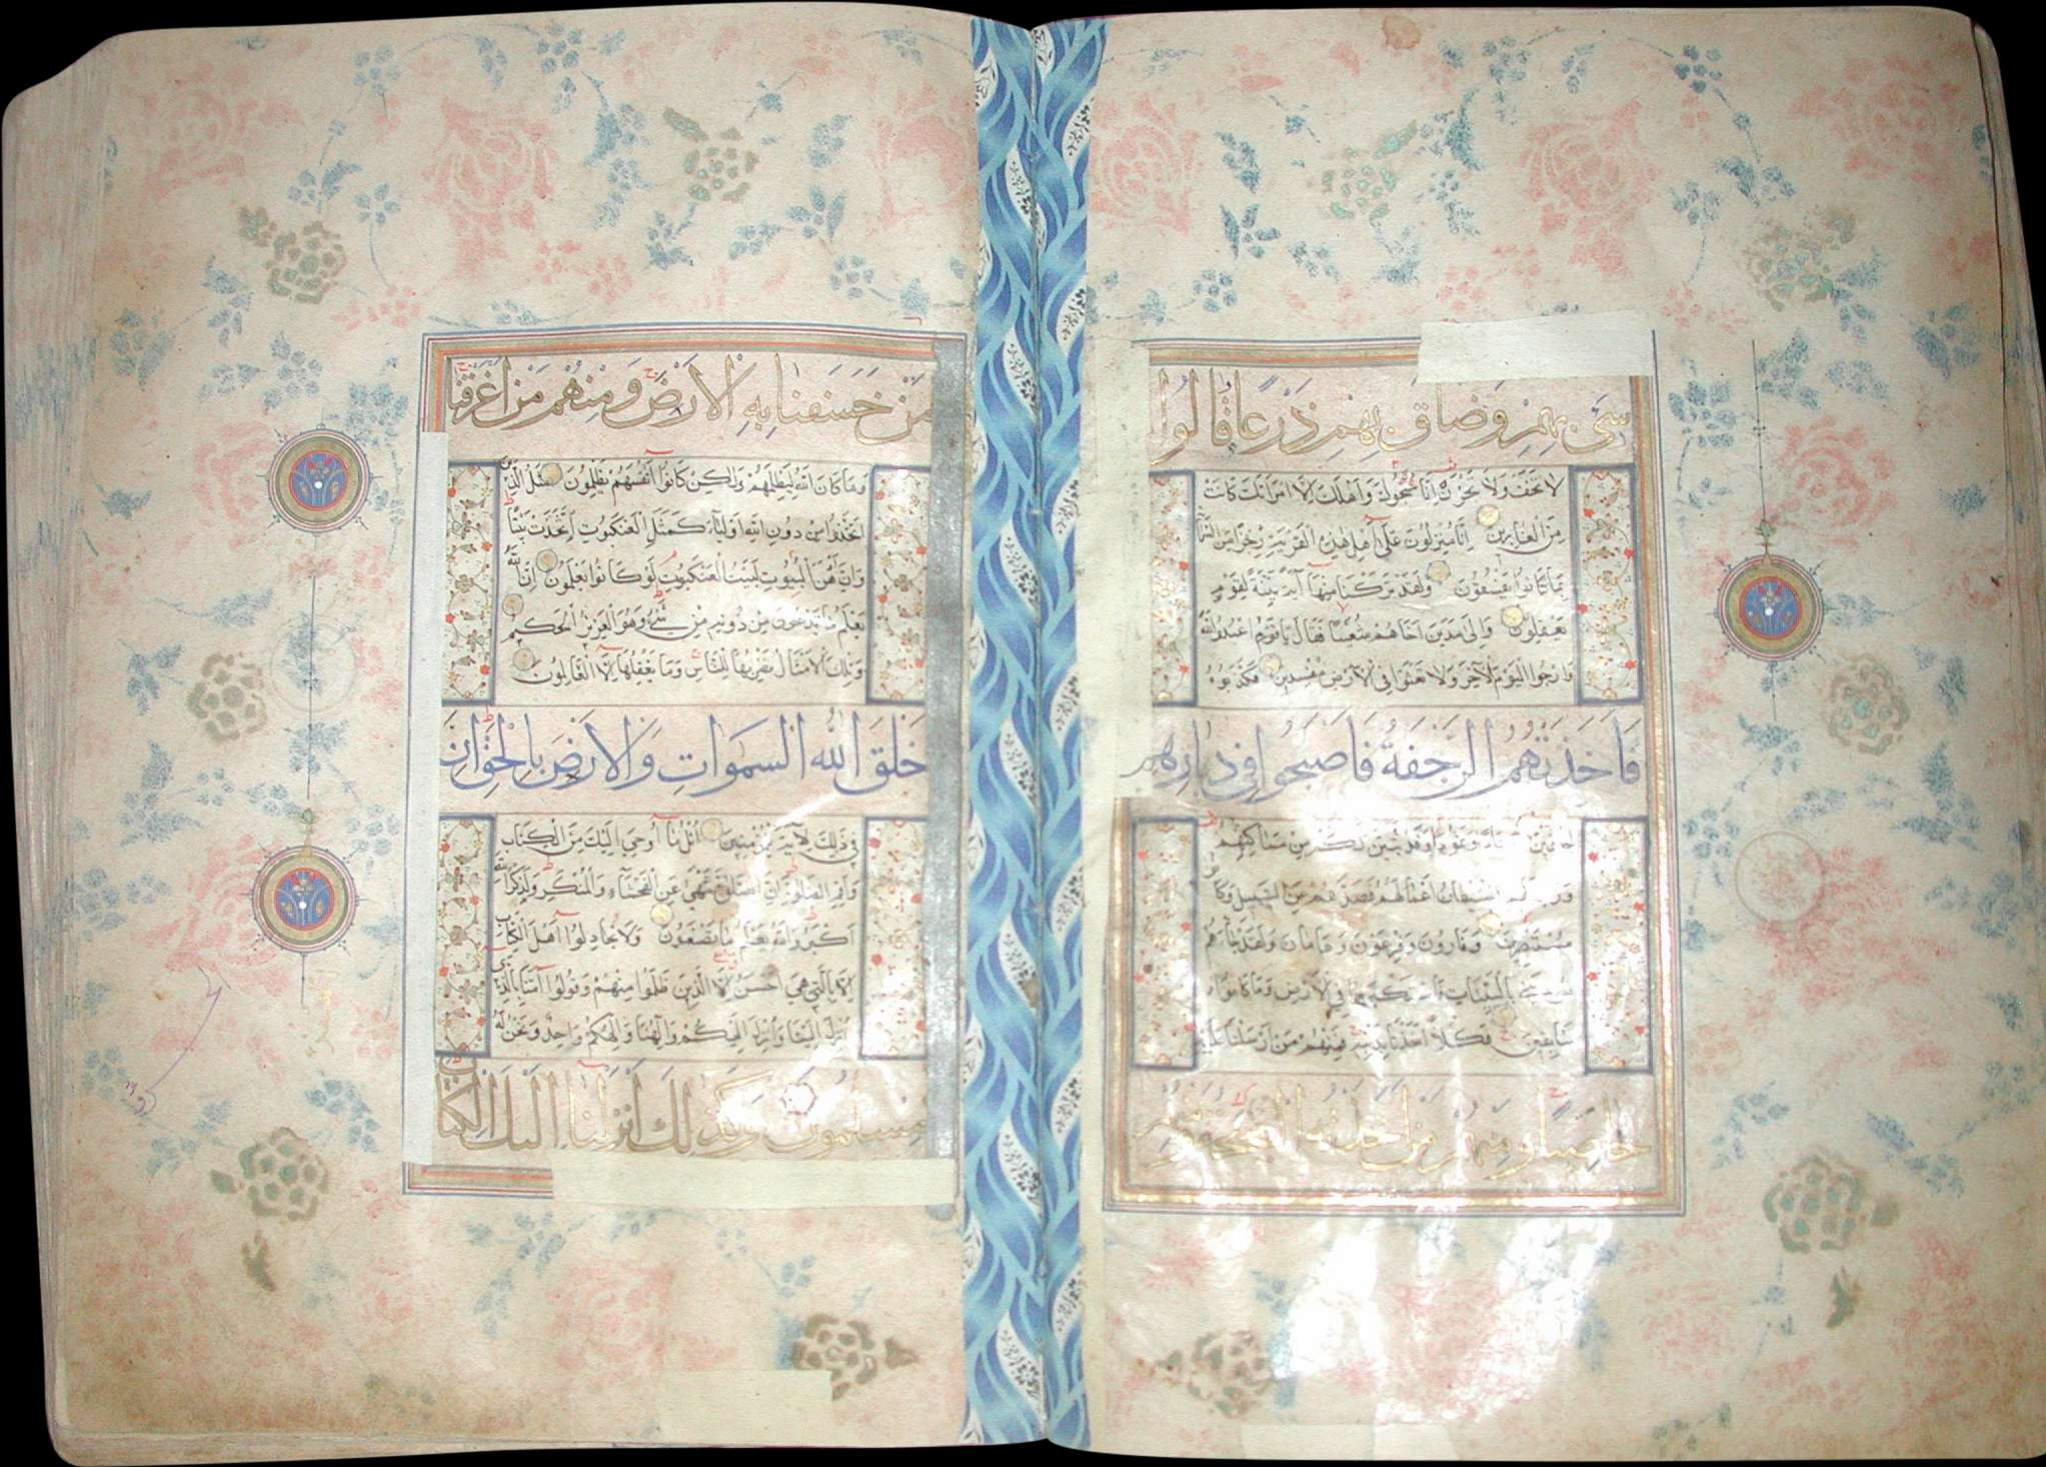 سىء بهم وضاق بهم ذرعا وقالوا
لا تخف ولا تحزن انا منجوك واهلك الا امراتك كانت
من الغابرين انا منزلون على اهل هذه القرية رجزا من السما
بما كانوا يفسقون ولقد تركنا منها آية بينة لقوم
يعقلون والى مدين اخاهم شعيبا فقال يا قوم اعبدوا الله
وارجوا اليوم الآخر ولا تعثوا في الارض مفسدين فكذبوه
فاخذتهم الرجفة فاصبحوا في دارهم
جاثمين وعادا وثمودا وقد تبين لكم من مساكنهم
وزين لهم الشيطان اعمالهم فصدهم عن السبيل وكانوا
مستبصرين وقارون وفرعون وهامان ولقد جاءهم
موسى بالبينات فاستكبروا في الارض وما كانوا
سابقين فكلا اخذنا بذنبه فمنهم من ارسلنا عليه
حاصبا ومنهم من اخذته الصيحة ومنهم
من خسفنا به الارض ومنهم من اغرقنا
وما كان الله ليظلمهم ولكن كانوا انفسهم يظلمون مثل الذين
اتخذوا من دون الله اولياء كمثل العنكبوت اتخذت بيتا
وان اوهن البيوت لبيت العنكبوت لو كانوا يعلمون ان الله
يعلم ما يدعون من دونه من شيء وهو العزيز الحكيم
وتلك الامثال نضربها للناس وما يعقلها الا العالمون
خلق الله السموات والارض بالحق ان
في ذلك لآية للمؤمنين اتل ما اوحي اليك من الكتاب
واقم الصلوة ان الصلوة تنهى عن الفحشاء والمنكر ولذكر الله
اكبر والله يعلم ما تصنعون ولا تجادلوا اهل الكتاب
الا بالتي هي احسن الا الذين ظلموا منهم وقولوا آمنا بالذي
انزل الينا وانزل اليكم والهنا والهكم واحد ونحن له
مسلمون وكذلك انزلنا اليك الكتاب